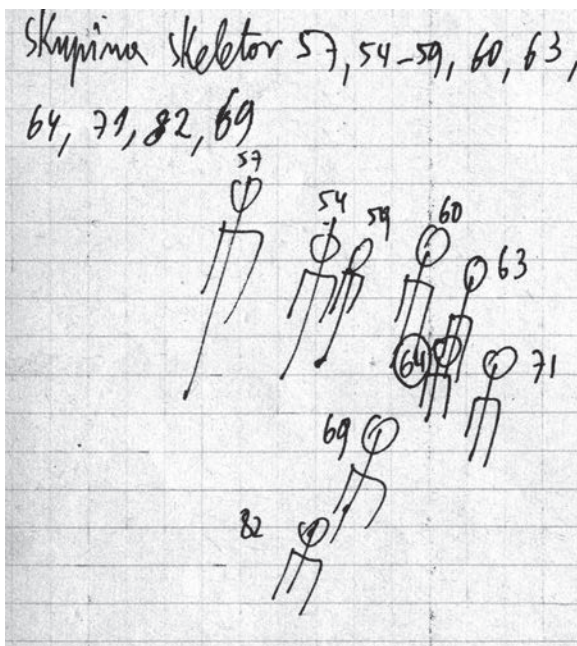 Skupina skeletov 57, 54-59, 60, 63,
64, 71, 82, 69
57
54
59
60
63
64
71
69
82